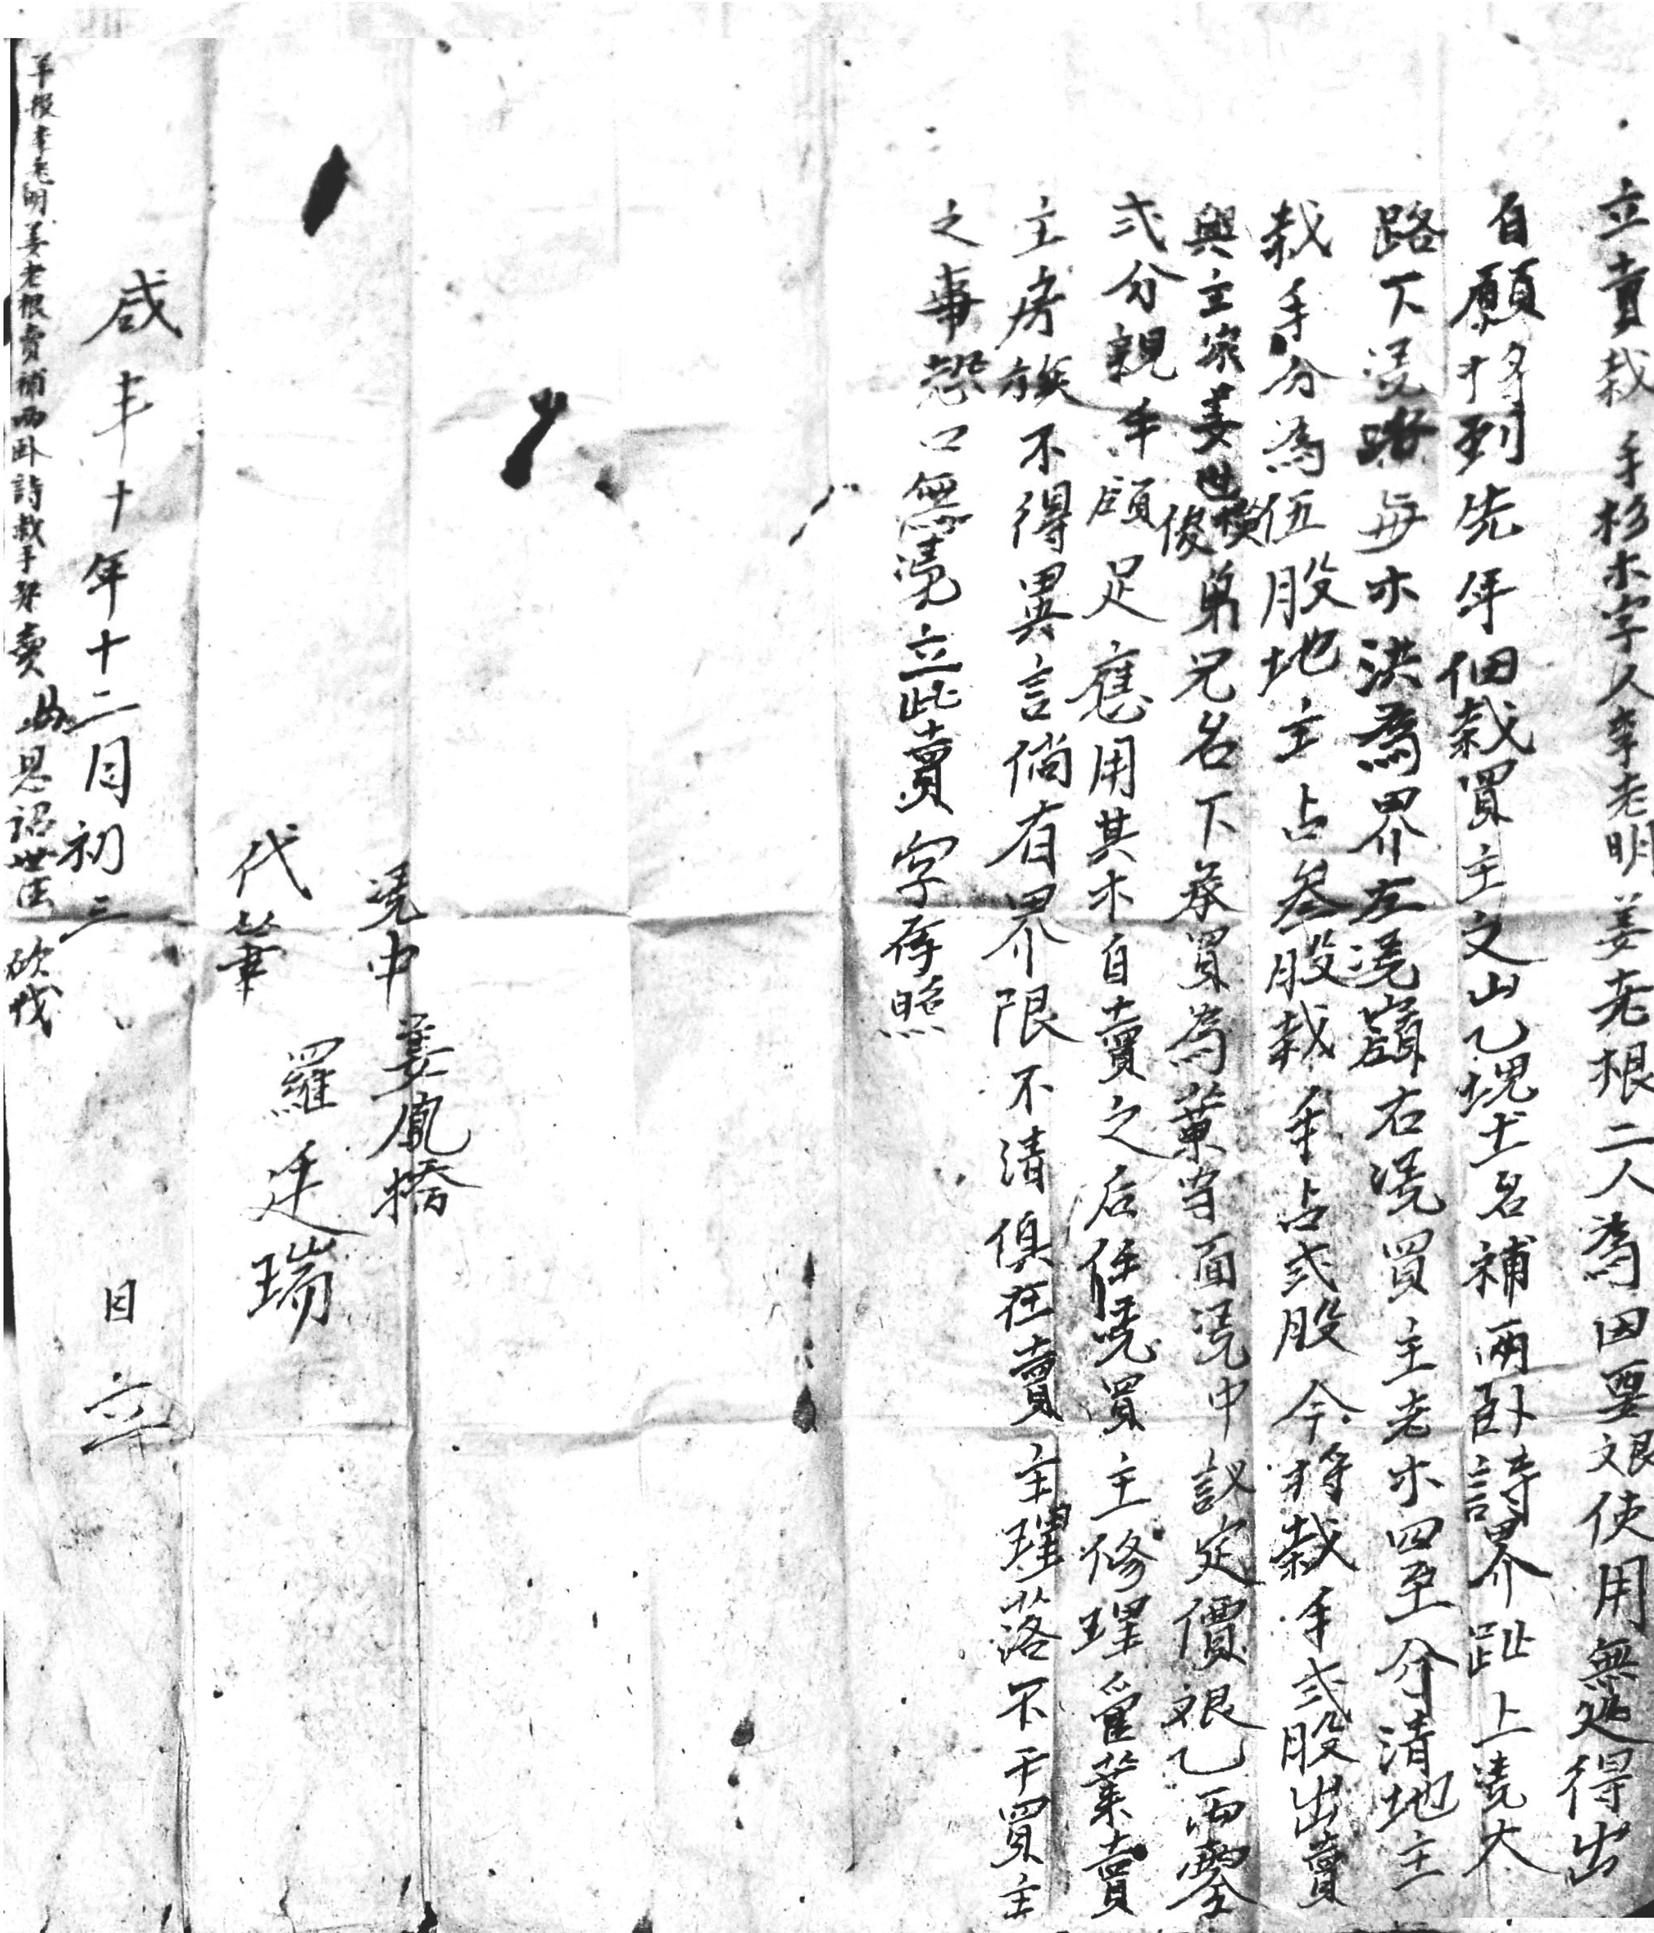 立賣栽手杉木字人李老明姜老根二人為因要艮使用無處得出
自願將到先年佃栽買主之山乙塊土名補兩卧詩界趾上凴大
路下凴路毎木洪為界左凴嶺右凴買主老木四至分清地主
栽手分為伍股地主占叁股栽手占弍股今將栽手弍股出賣
與主家姜世模俊弟兄名下承買為業當面凴中議定價艮乙兩零
弍分親手領足應用其木自賣之后任凴買主修理管業賣
主房族不得異言倘有界限不清俱在賣主理落不干買主
之事恐口無凴立此賣字存照
凴中姜鳳橋
代筆羅廷瑞
咸丰十年十二月初三日立
李老明姜老根賣補兩卧詩栽手契賣與恩詔世法砍伐